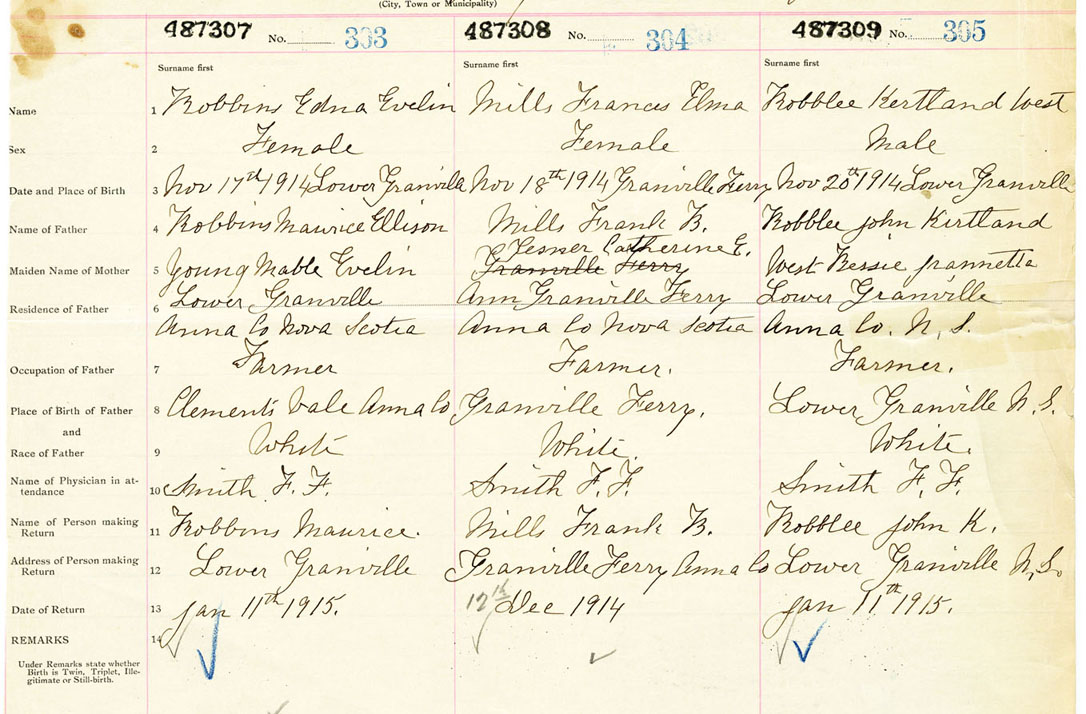 (City, Town or Municipality)
487307 No. 303 487308 No. 304 487309 No. 305
Surname first Surname first Surname first
Name 1 Robbins Edna Evelin Mills Frances Elma Robblee Kertland West
Sex 2 Female Female Male
Date and Place of Birth 3 Nov 17th 1914 Lower Granville Nov 18th 1914 Granville Ferry Nov 20th 1914 Lower Granville
Name of Father 4 Robbins Maurice Ellison Mills Frank B. Robblee John Kirtland
Catherine E.
Maiden Name of Mother 5 Young Mable Evelin Granville Ferry West Bessie
Residence of Father 6 Lower Granville Ann Granville Ferry Lower Granville
Anna Co Nova Scotia Anna Co Nova Scotia Anna Co. N. S.
Occupation of Father 7 Farmer Farmer. Farmer.
Place of Birth of Father 8 Clements Vale Anna Co Granville Ferry. Lower Granville N. S.
and
Race of Father 9 White White. White.
Name of Physician in at-
tendance 10 Smith F. F. Smith F. F. Smith F. F.
Name of Person making
Return 11 Robbins Maurice. Mills Frank B. Robblee John K.
Address of Person making
Return 12 Lower Granville Granville Ferry Anna Co Lower Granville N. S.
Date of Return 13 Jan 11th 1915. 12th Dec 1914 Jan 11th 1915.
REMARKS 14
Under Remarks state whether
Birth is Twin, Triplet, Ille-
gitimate or Still-birth.